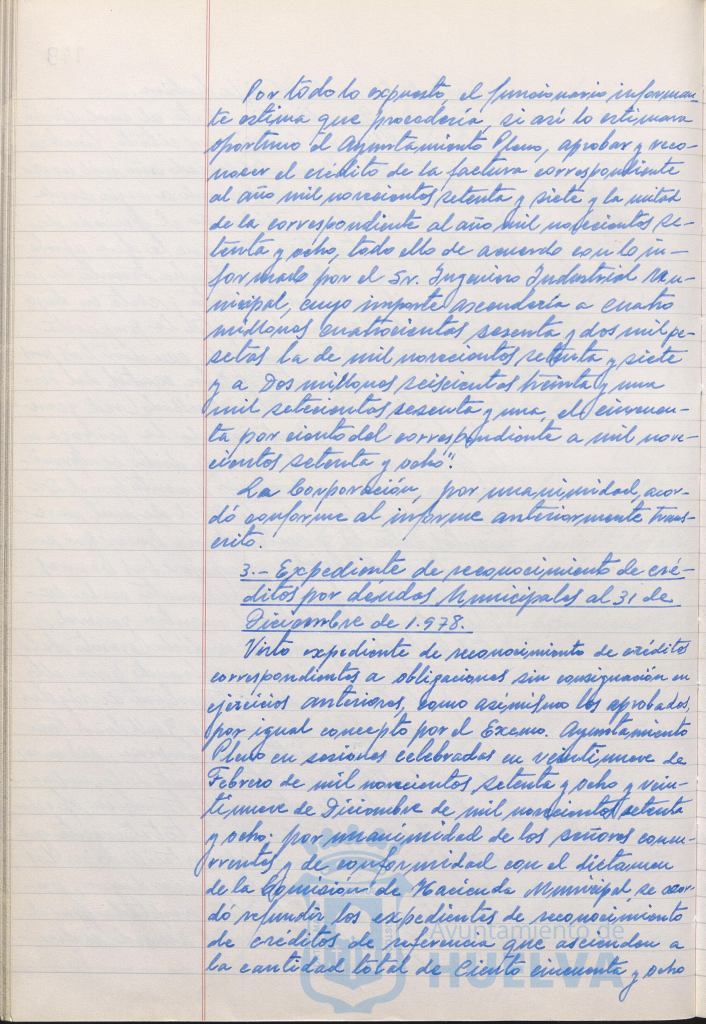 Por todo lo expuesto, el funcionario informan-
te estima que procedería, si así lo estimara
oportuno el Ayuntamiento Pleno, aprobar y reco-
nocer el crédito de la factura correspondiente
al año mil novecientos setenta y siete y la mitad
de la correspondiente al año mil novecientos se-
tenta y ocho, todo ello de acuerdo con lo in-
formado por el Sr. Ingeniero Industrial Mu-
nicipal, cuyo importe ascendería a cuatro
millones cuatrocientas sesenta y dos mil pe-
setas la de mil novecientos setenta y siete
y a Dos millones seiscientas treinta y una
mil setecientas sesenta y una, el cincuen-
ta por ciento del correspondiente a mil nove-
cientos setenta y ocho".
La Corporación, por unanimidad, acor-
dó conforme al informe anteriormente trans-
crito.
3.- Expediente de reconocimiento de cré-
ditos por deudas Municipales al 31 de
Diciembre de 1.978.
Visto expediente de reconocimiento de créditos
correspondientes a obligaciones sin consignación en
ejercicios anteriores, como asimismo los aprobados,
por igual concepto por el Excmo. Ayuntamiento
Pleno en sesiones celebradas en veintinueve de
Febrero de mil novecientos setenta y ocho y vein-
tinueve de Diciembre de mil novecientos setenta
y ocho: por unanimidad de los señores concu-
rrentes y de conformidad con el dictamen
de la Comisión de Hacienda Municipal, se acor-
dó refundir los expedientes de reconocimiento
de créditos de referencia que ascienden a
la cantidad total de Ciento cincuenta y ocho
Ayuntamiento de
HUELVA